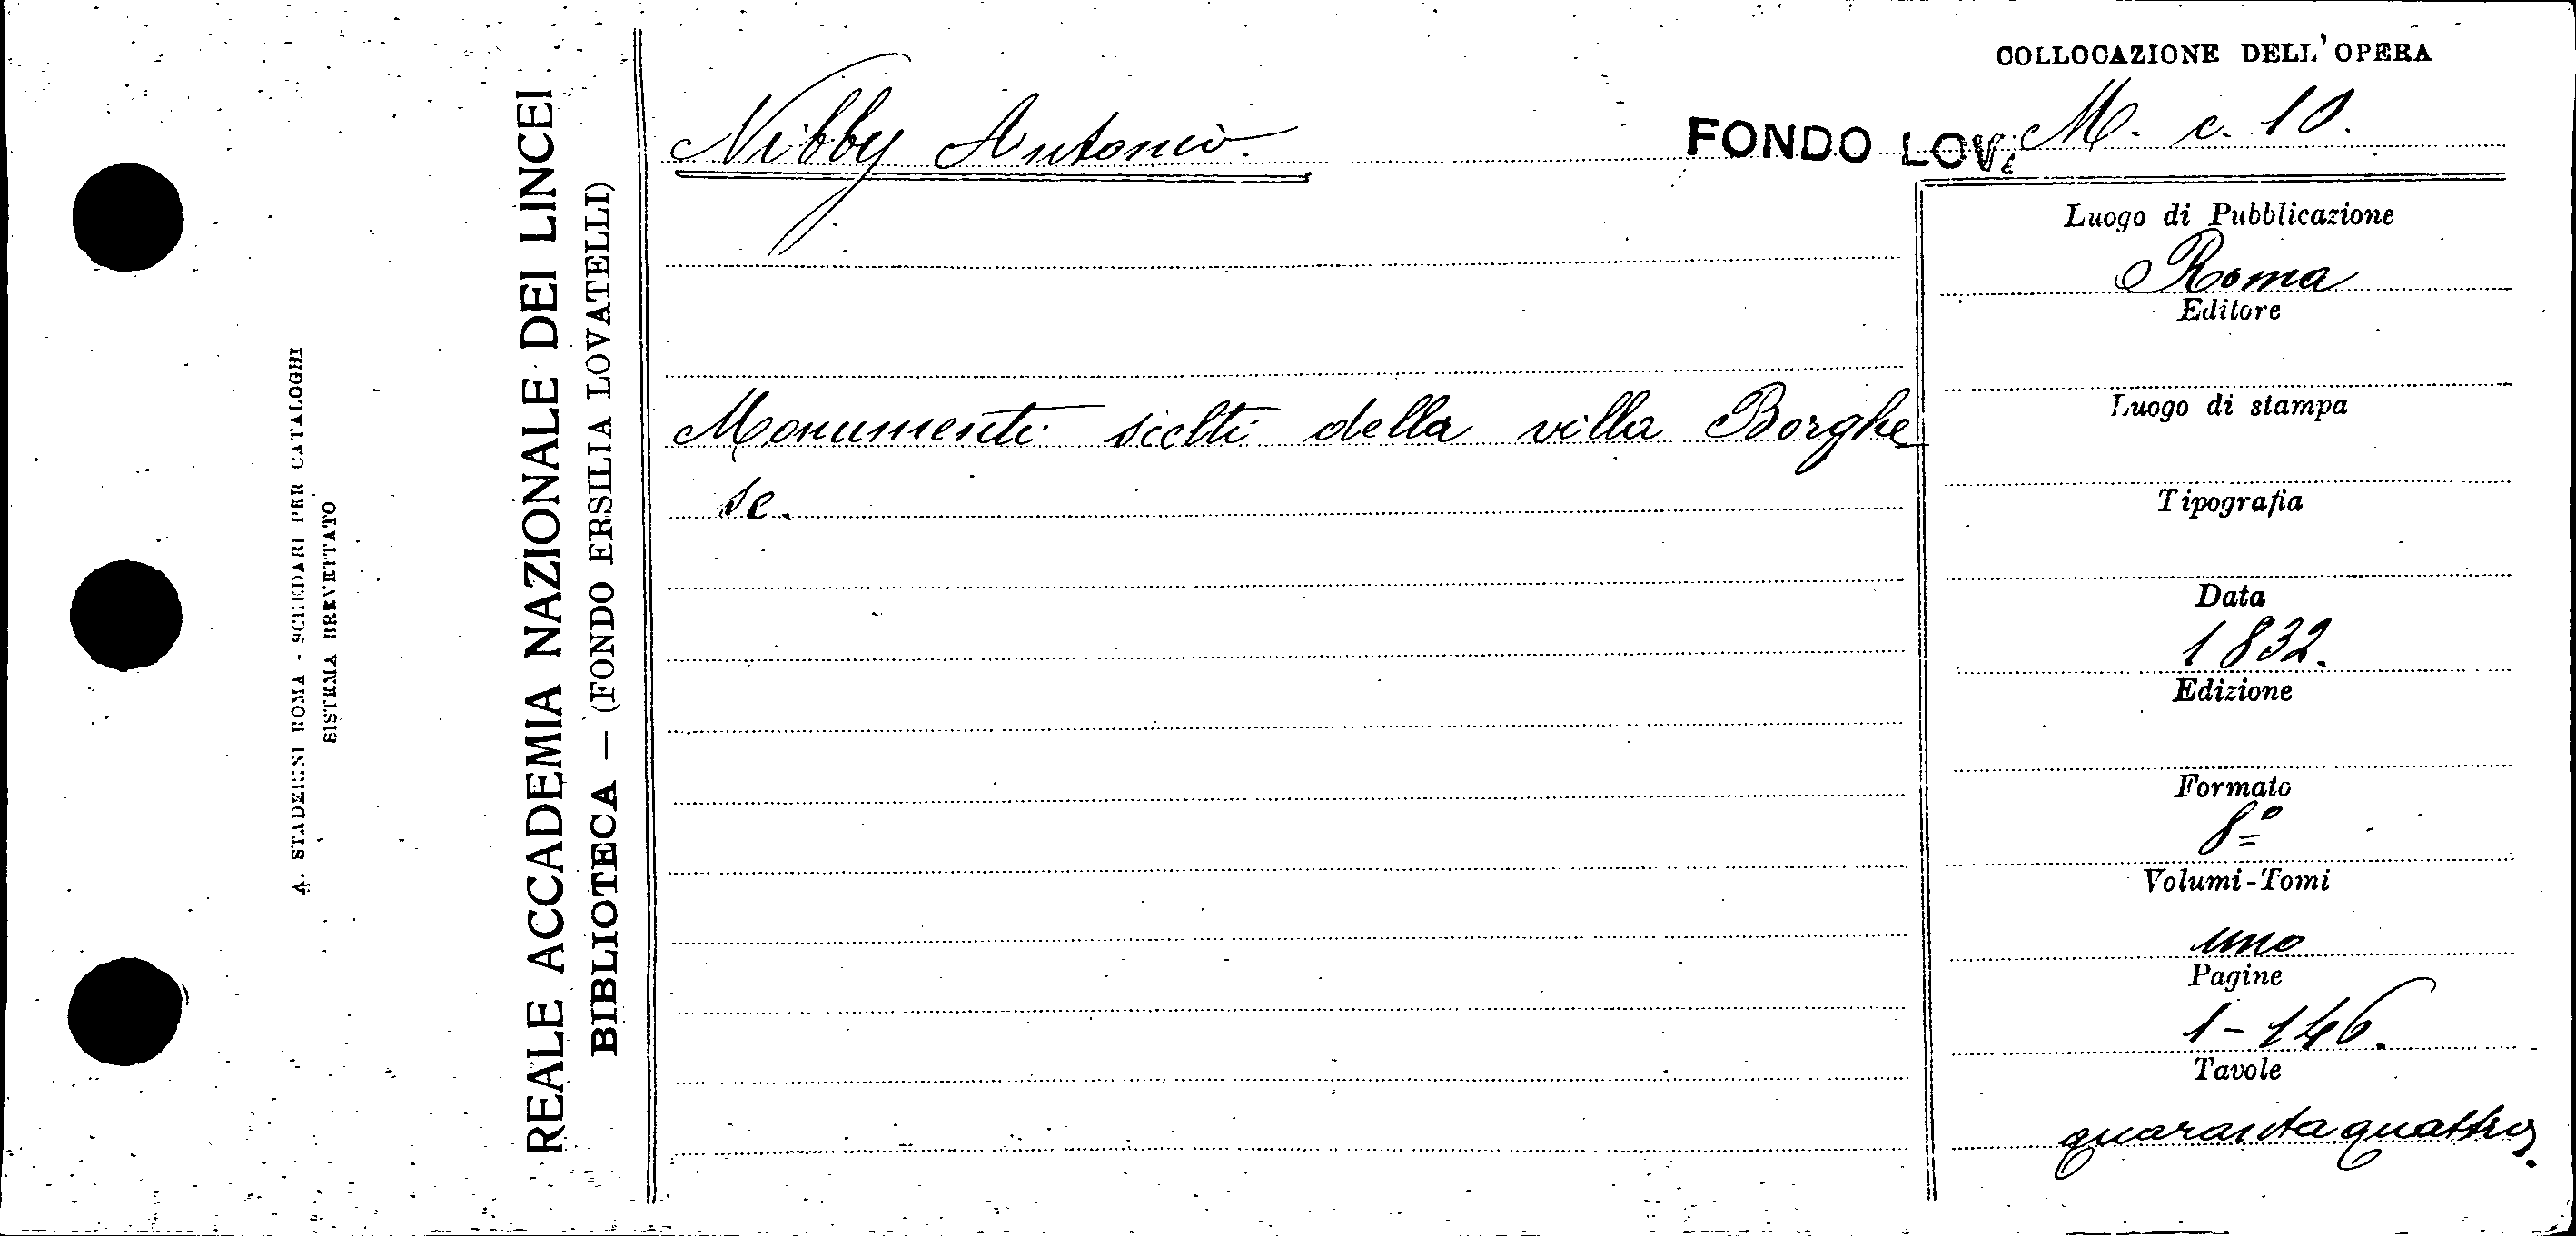 COLLOCAZIONE DELL'OPERA
Nibby Antonio.
FONDO LOV. M. c. 10.
Luogo di Pubblicazione
Roma
Editore
Monumenti scelti della villa Borghe
se.
Luogo di stampa
Tipografia
Data
1832.
Edizione
Formato
8º
Volumi-Tomi
uno
Pagine
1-146.
Tavole
quarantaquattro.
REALE ACCADEMIA NAZIONALE DEI LINCEI
BIBLIOTECA — (FONDO ERSILIA LOVATELLI)
A. STADERINI ROMA - SCHEDARI PER CATALOGHI
SISTEMA BREVETTATO